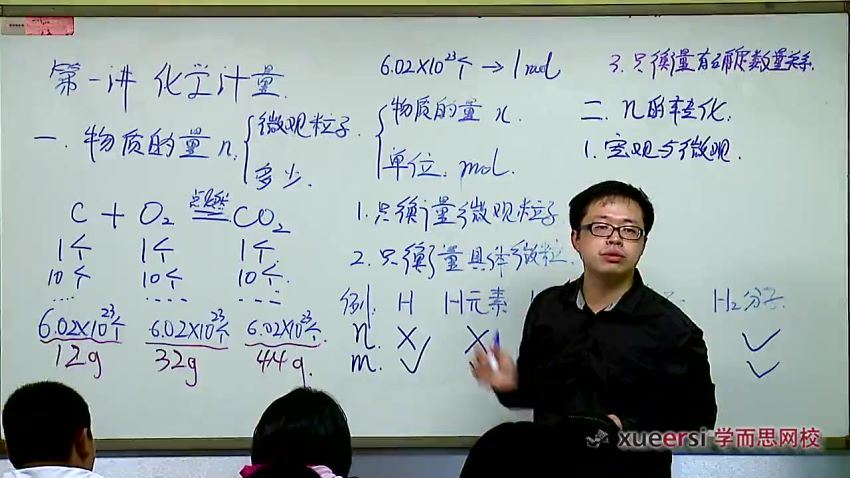 第一讲 化学计量.
一. 物质的量 n. 微观粒子. 多少.
C + O₂ 点燃 CO₂
1个 1个 1个.
10个 10个 10个.
.... ... ---
6.02×10²³个 6.02×10²³个 6.02×10²³个.
12g 32g 44g.
6.02×10²³个 → 1mol
物质的量 n.
单位. mol.
1.只衡量微观粒子
2.只衡量具体微粒.
例. H H元素 H₂分子.
n. × × ✓
m. ✓ ✓
3.只衡量有确定数量关系.
二. n的转化.
1.宏观与微观.
xueersi 学而思网校